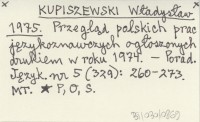 KUPISZEWSKI Władysław
1975. Przegląd polskich prac
językoznawczych ogłoszonych
drukiem w roku 1974. — Porad.
Język. nr 5 (329): 260-273.
MT. ★ P, O, S.